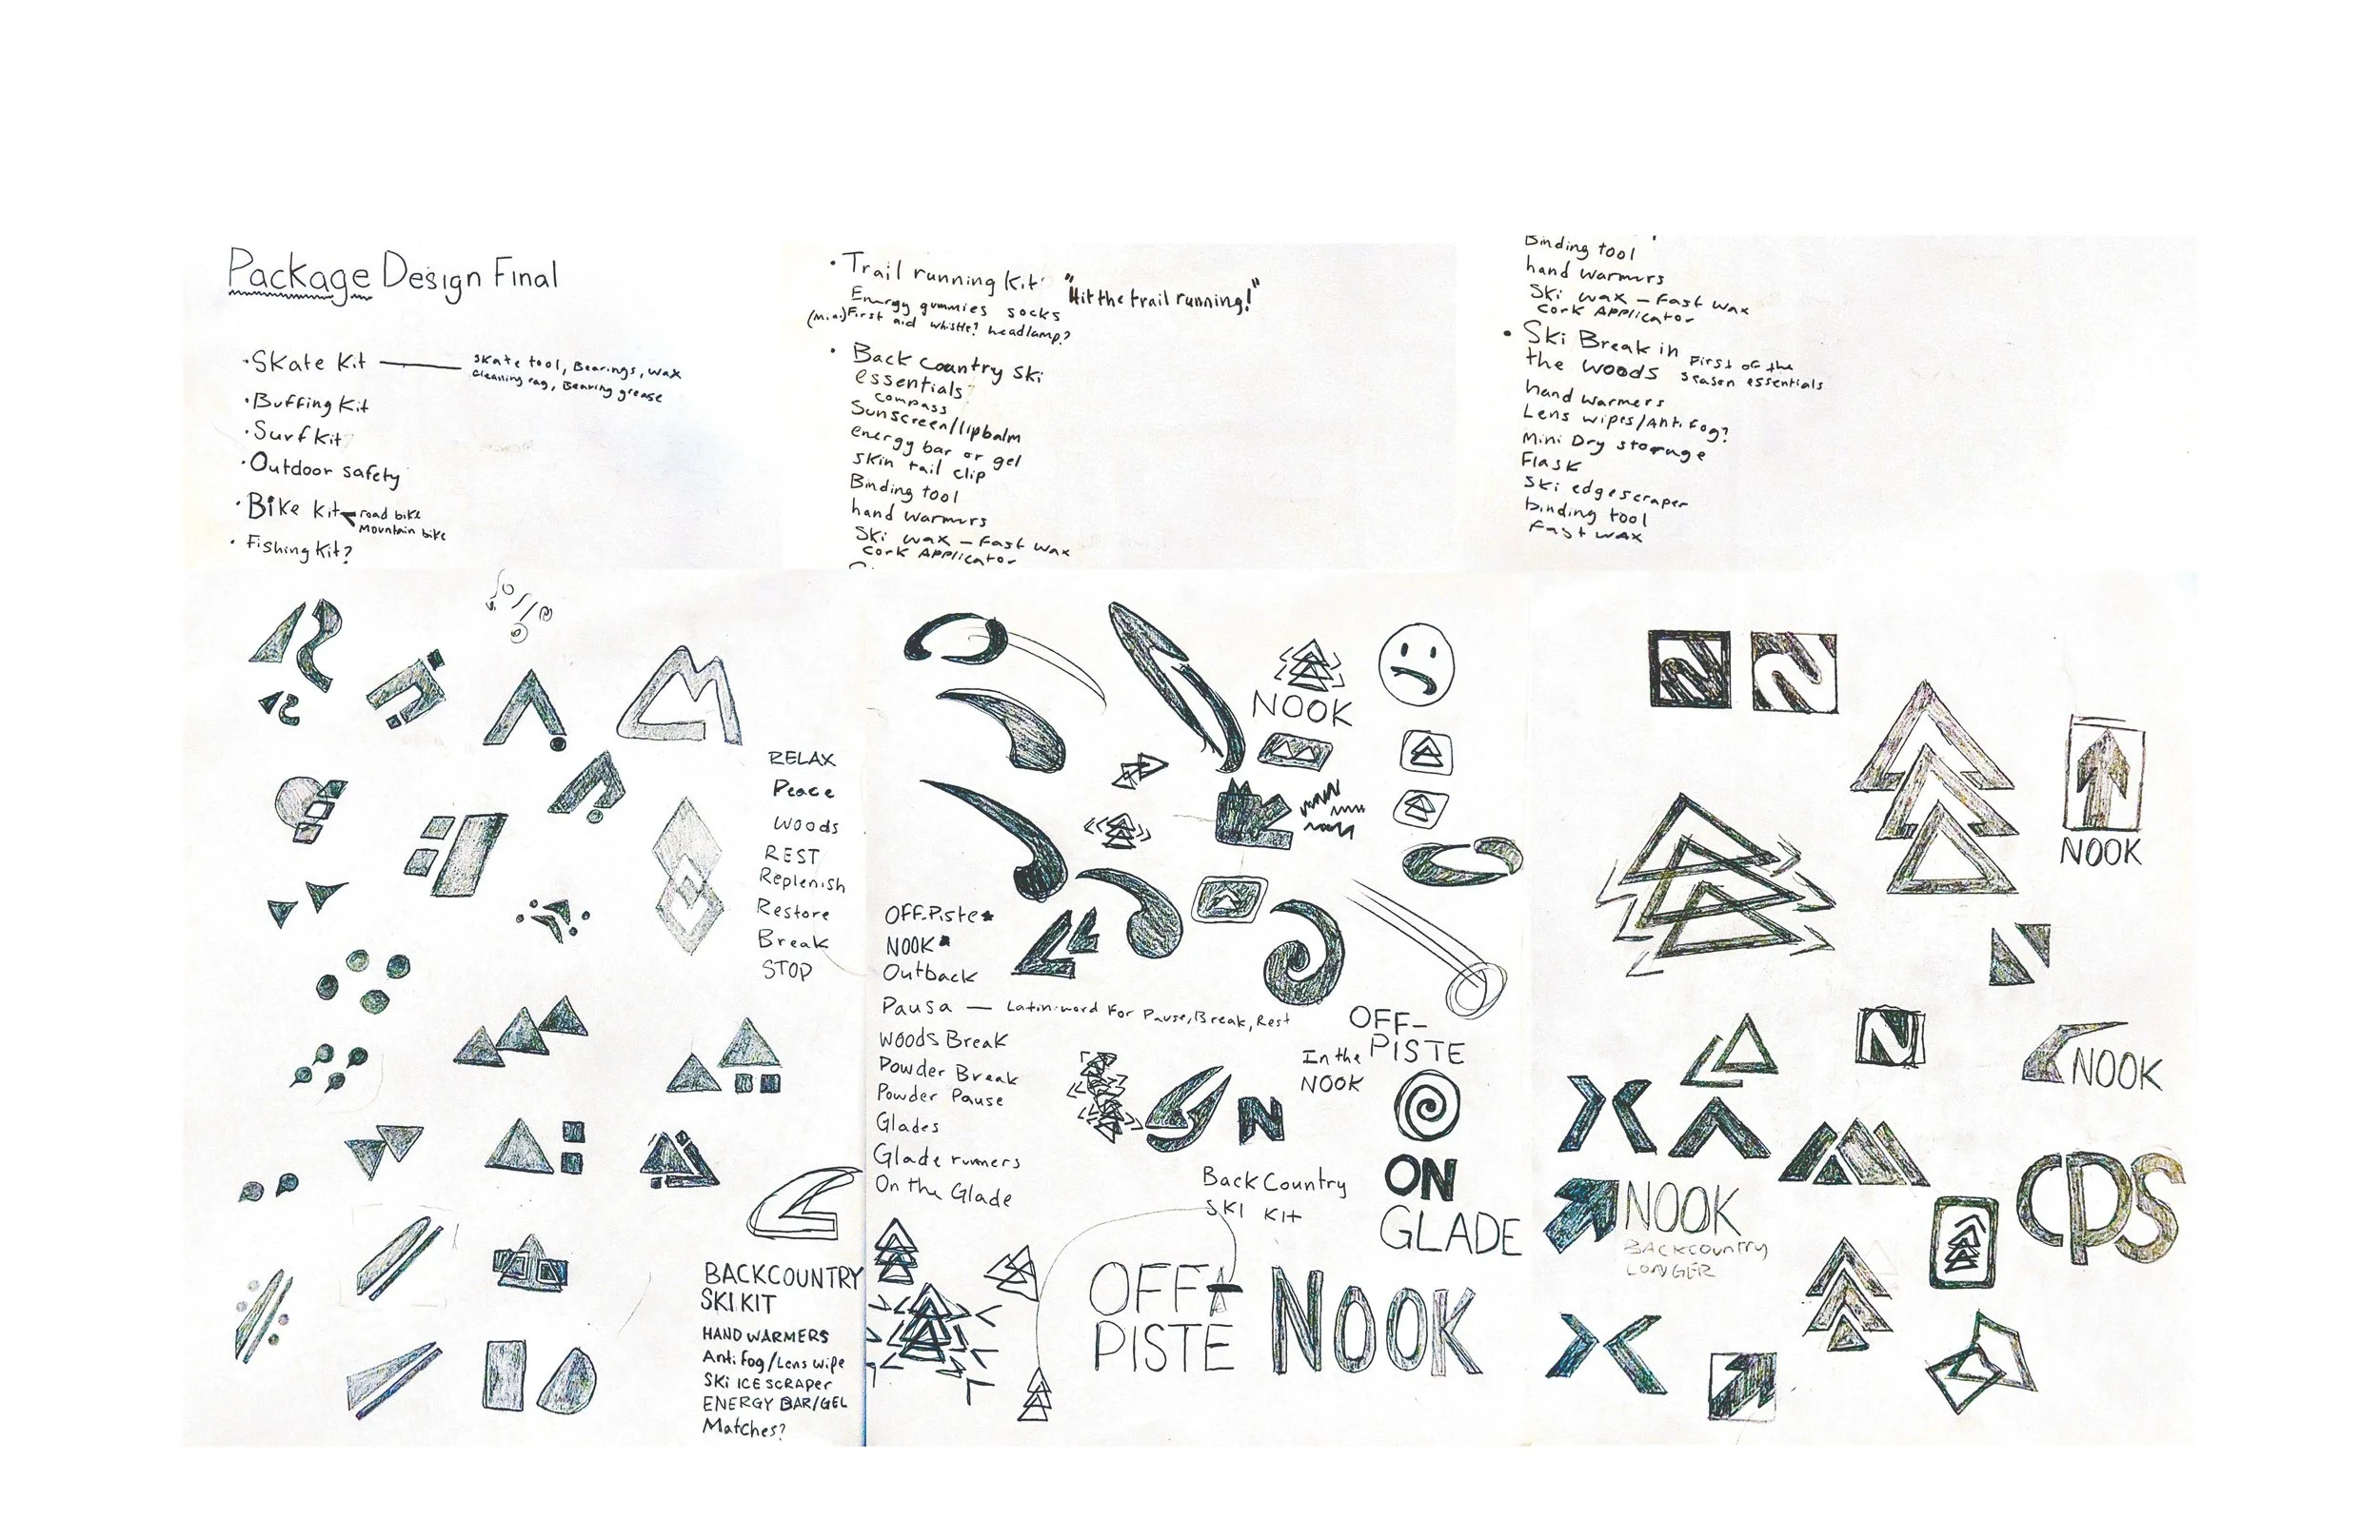 Package Design Final
·Skate Kit — Skate tool, Bearings, wax
Cleaning rag, Bearing grease
·Buffing Kit
·Surf Kit
·Outdoor safety
·Bike Kit road bike
Mountain bike
·Fishing Kit?
·Trail running Kit "Hit the trail running!"
Energy gummies socks
(Mini) First aid whistle? headlamp?
· Back Country Ski
essentials
compass
Sunscreen/lipbalm
energy bar or gel
skin tail clip
Binding tool
hand warmurs
Ski wax - Fast wax
Cork Applicator
Binding tool
hand warmurs
Ski wax - Fast wax
Cork Applicator
· Ski Break in First of the
the woods season essentials
hand warmers
Lens wipes/Anti fog?
Mini Dry storage
Flask
Ski edge scraper
binding tool
Fast wax
RELAX
Peace
Woods
REST
Replenish
Restore
Break
STOP
BACKCOUNTRY
SKI KIT
HAND WARMERS
Anti Fog/Lens wipe
SKi ICE SCRAPER
ENERGY BAR/GEL
Matches?
NOOK
OFF-Piste
NOOK
Outback
Pausa — Latin word For Pause, Break, Rest
Woods Break
Powder Break
Powder Pause
Glades
Glade runners
On the Glade
OFF-
PISTE
In the
NOOK
N
Back Country
SKI Kit
ON
GLADE
OFF-
PISTE
NOOK
N
NOOK
N
NOOK
NOOK
BACKCOUNTRY
CPS